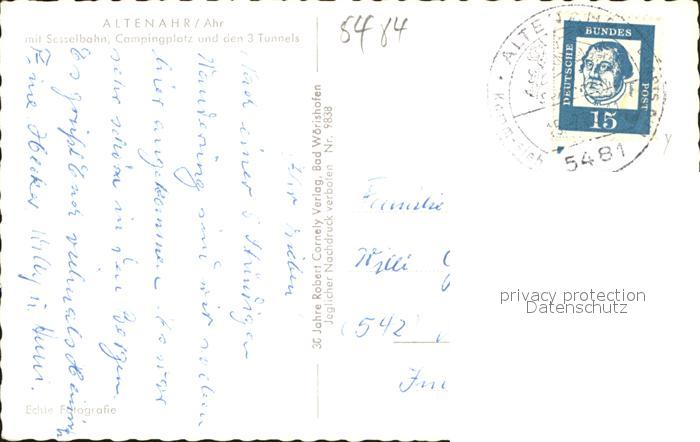 ALTENAHR/Ahr
mit Sesselbahn, Campingplatz und den 3 Tunnels
5484
Ihr Lieben!
Nach einer 6 stündigen
Wanderung sind wir soeben
hier angekommen. Es war
sehr schön in den Bergen.
Es grüßt Euch vielmals Heinrich
Willy u.
Echte Fotografie
30 Jahre Robert Cornely Verlag, Bad Wörishofen
Jeglicher Nachdruck verboten Nr. 9838
ALTENAHR
5481
DEUTSCHE
BUNDES
POST
15
Familie
Willi
(542
privacy protection
Datenschutz